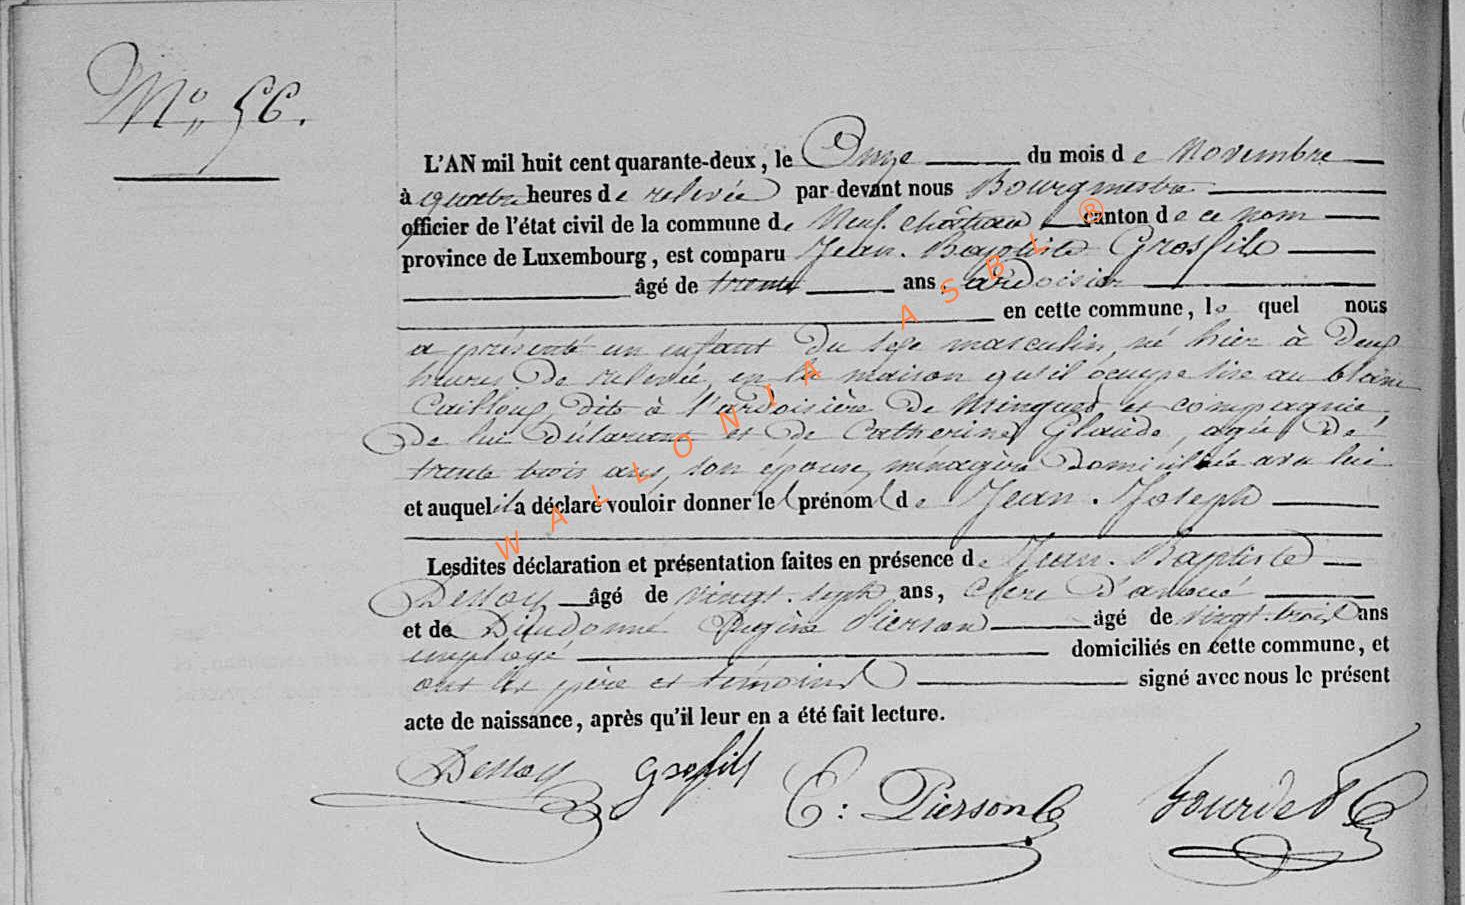 N° 56.
L'AN mil huit cent quarante-deux, le Onze du mois de Novembre
à quatre heures de relevée par devant nous Bourgmestre
officier de l'état civil de la commune de Neufchâteau canton de ce nom
province de Luxembourg, est comparu Jean-Baptiste Grosfils
âgé de trente ans, ardoisier
en cette commune, lequel nous
a présenté un enfant du sexe masculin, né hier à deux
heures de relevée, en la maison qu'il occupe sise au blanc
Cailloux, dite à l'ardoisière de et compagnie,
de lui déclarant et de Catherine Glaude, agée de
trente trois ans, son épouse, ménagère domiciliée avec lui
et auquel il a déclaré vouloir donner le prénom de Jean-Joseph
Lesdites déclaration et présentation faites en présence de Jean-Baptiste
Dessoy âgé de vingt-sept ans, Clerc d'avoué
et de Dieudonné Eugène Pierson âgé de vingt-trois ans
employé domiciliés en cette commune, et
ont les père et témoins signé avec nous le présent
acte de naissance, après qu'il leur en a été fait lecture.
Dessoy Grosfils E: Pierson Gourdet
WALLONIA ASBL ®